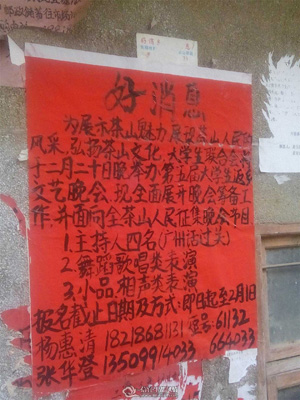 好消息
为展示茶山魅力展现茶山人民的
风采,弘扬茶山文化,大学生联合会将
于二月二十日举办第五届大学生返乡
文艺晚会,现全面展开晚会筹备工
作,并面向全茶山人民征集晚会节目
1.主持人四名(广州话过关)
2.舞蹈歌唱类表演
3.小品相声类表演
报名截止日期及方式:即日起至2月1
杨惠清 18218681131 短号:61132
张华登 13509914033 664033